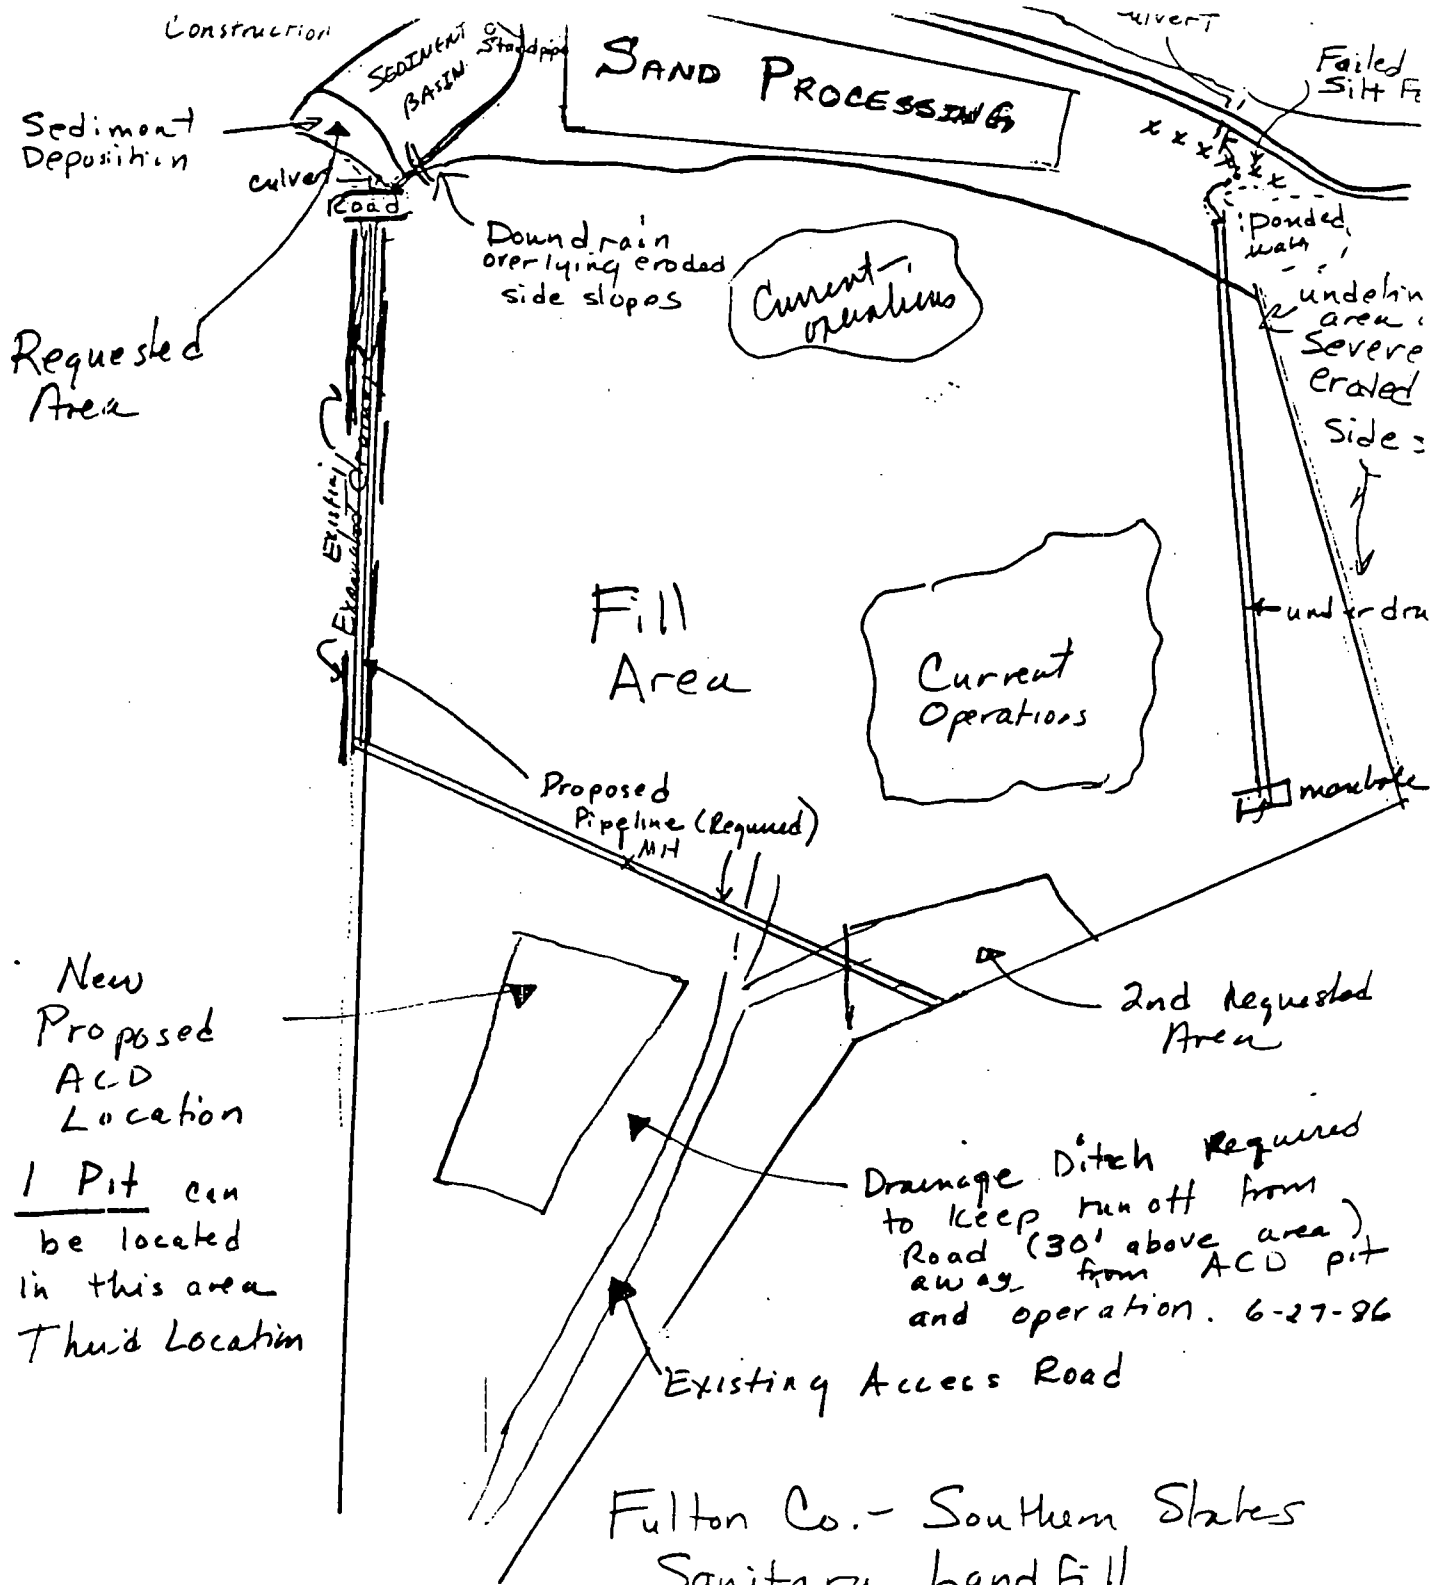 Construction
SEDIMENT
BASIN
Standpipe
SAND PROCESSING
Culvert
Failed
Silt Fe
Sediment
Deposition
culvert
Road
Downdrain
overlying eroded
side slopes
Current
operations
ponded
water
undelin
area
Severe
eroded
Side s
Requested
Area
Existing
Fill
Area
Current
Operations
under dra
manhole
Proposed
Pipeline (Required)
MH
New
Proposed
ACD
Location
1 Pit can
be located
in this area
Third Location
2nd Requested
Area
Drainage Ditch Required
to keep runoff from
Road (30' above area)
away from ACD pit
and operation. 6-27-86
Existing Access Road
Fulton Co.- Southern States
Sanitary Landfill